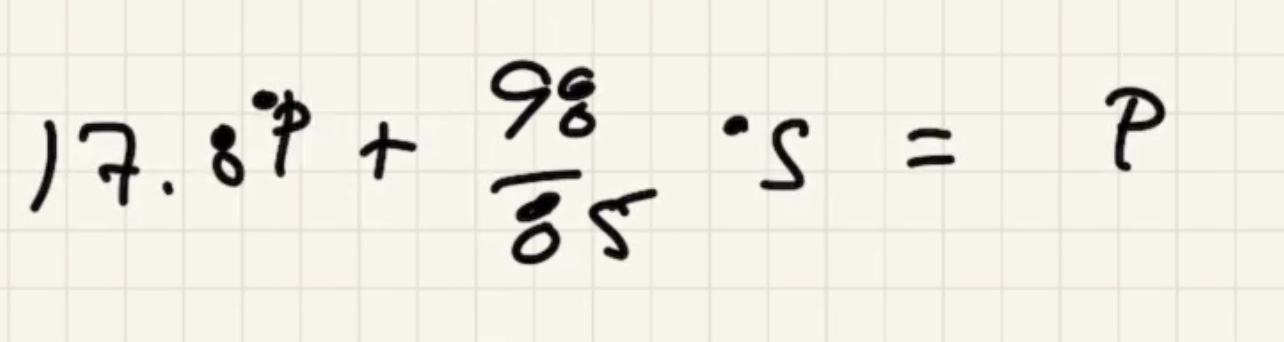 17.8°P + 98/85 °S = P